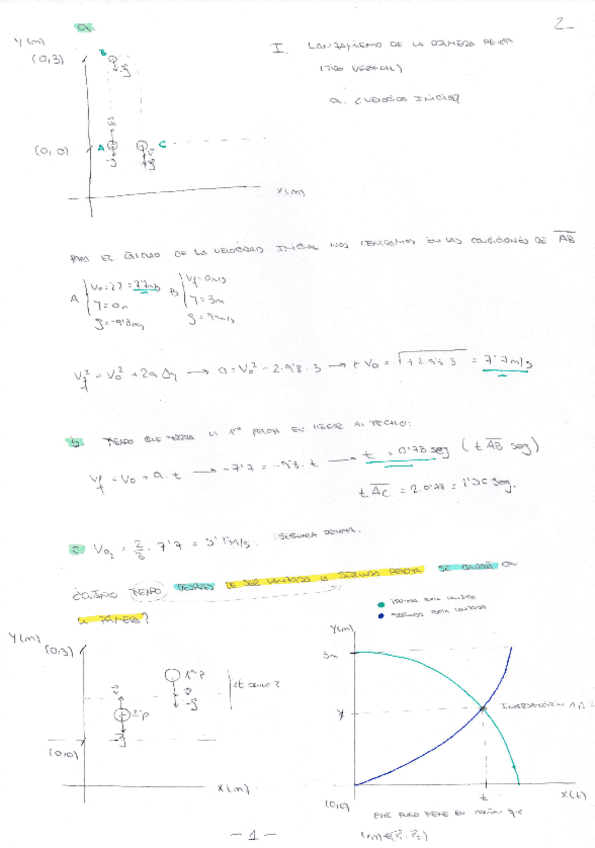 a
2_
Y (m)
(0,3)
B
I. LANZAMIENTO DE LA PRIMERA PELOTA
(TIRO VERTICAL)
a. ¿VELOCIDAD INICIAL?
(0,0)
A
C
X(m)
PARA EL CÁLCULO DE LA VELOCIDAD INICIAL NOS CENTRAMOS EN LAS CONDICIONES DE AB
A V0=¿? = 7'7m/s B Vf=0m/s
Y=0m Y=3m
g=-9'8m/s
Vf² = V0² + 2a Δy → 0=V0² - 2·9'8·3 → V0 = √+2·9'8·3 = 7'7m/s
b. TIEMPO QUE TARDA LA 1ª PELOTA EN LLEGAR AL TECHO:
Vf = V0 + a·t → -7'7 = -9'8·t → t = 0'78 seg (t AB seg)
t AC = 2·0'78 = 1'56 seg.
c V02 = 2/3 · 7'7 = 5'1m/s. SEGUNDA PELOTA.
¿CUÁNTO TIEMPO DESPUÉS DE SER LANZADA LA SEGUNDA PELOTA SE CRUZA CON
LA PRIMERA?
PRIMERA BOLA LANZADA
SEGUNDA BOLA LANZADA
Y(m)
(0,3)
1ªP
2ªP
(0,0)
X(m)
Y(m)
3m
Y
(0,0)
t
X(t)
ESTE PUNTO TIENE EN COMÚN QUE
- 1 -